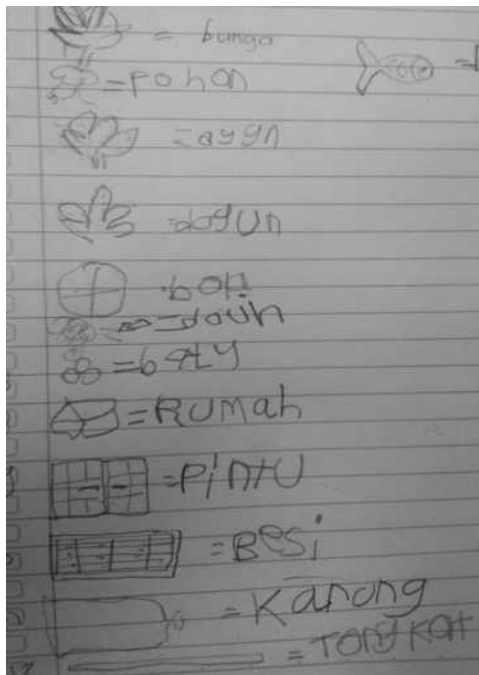 = bunga
= pohon
= ayyn
= dogun
= bola
= douh
= baty
= RUMah
= PiNtU
= Besi
= Karung
= TongKat